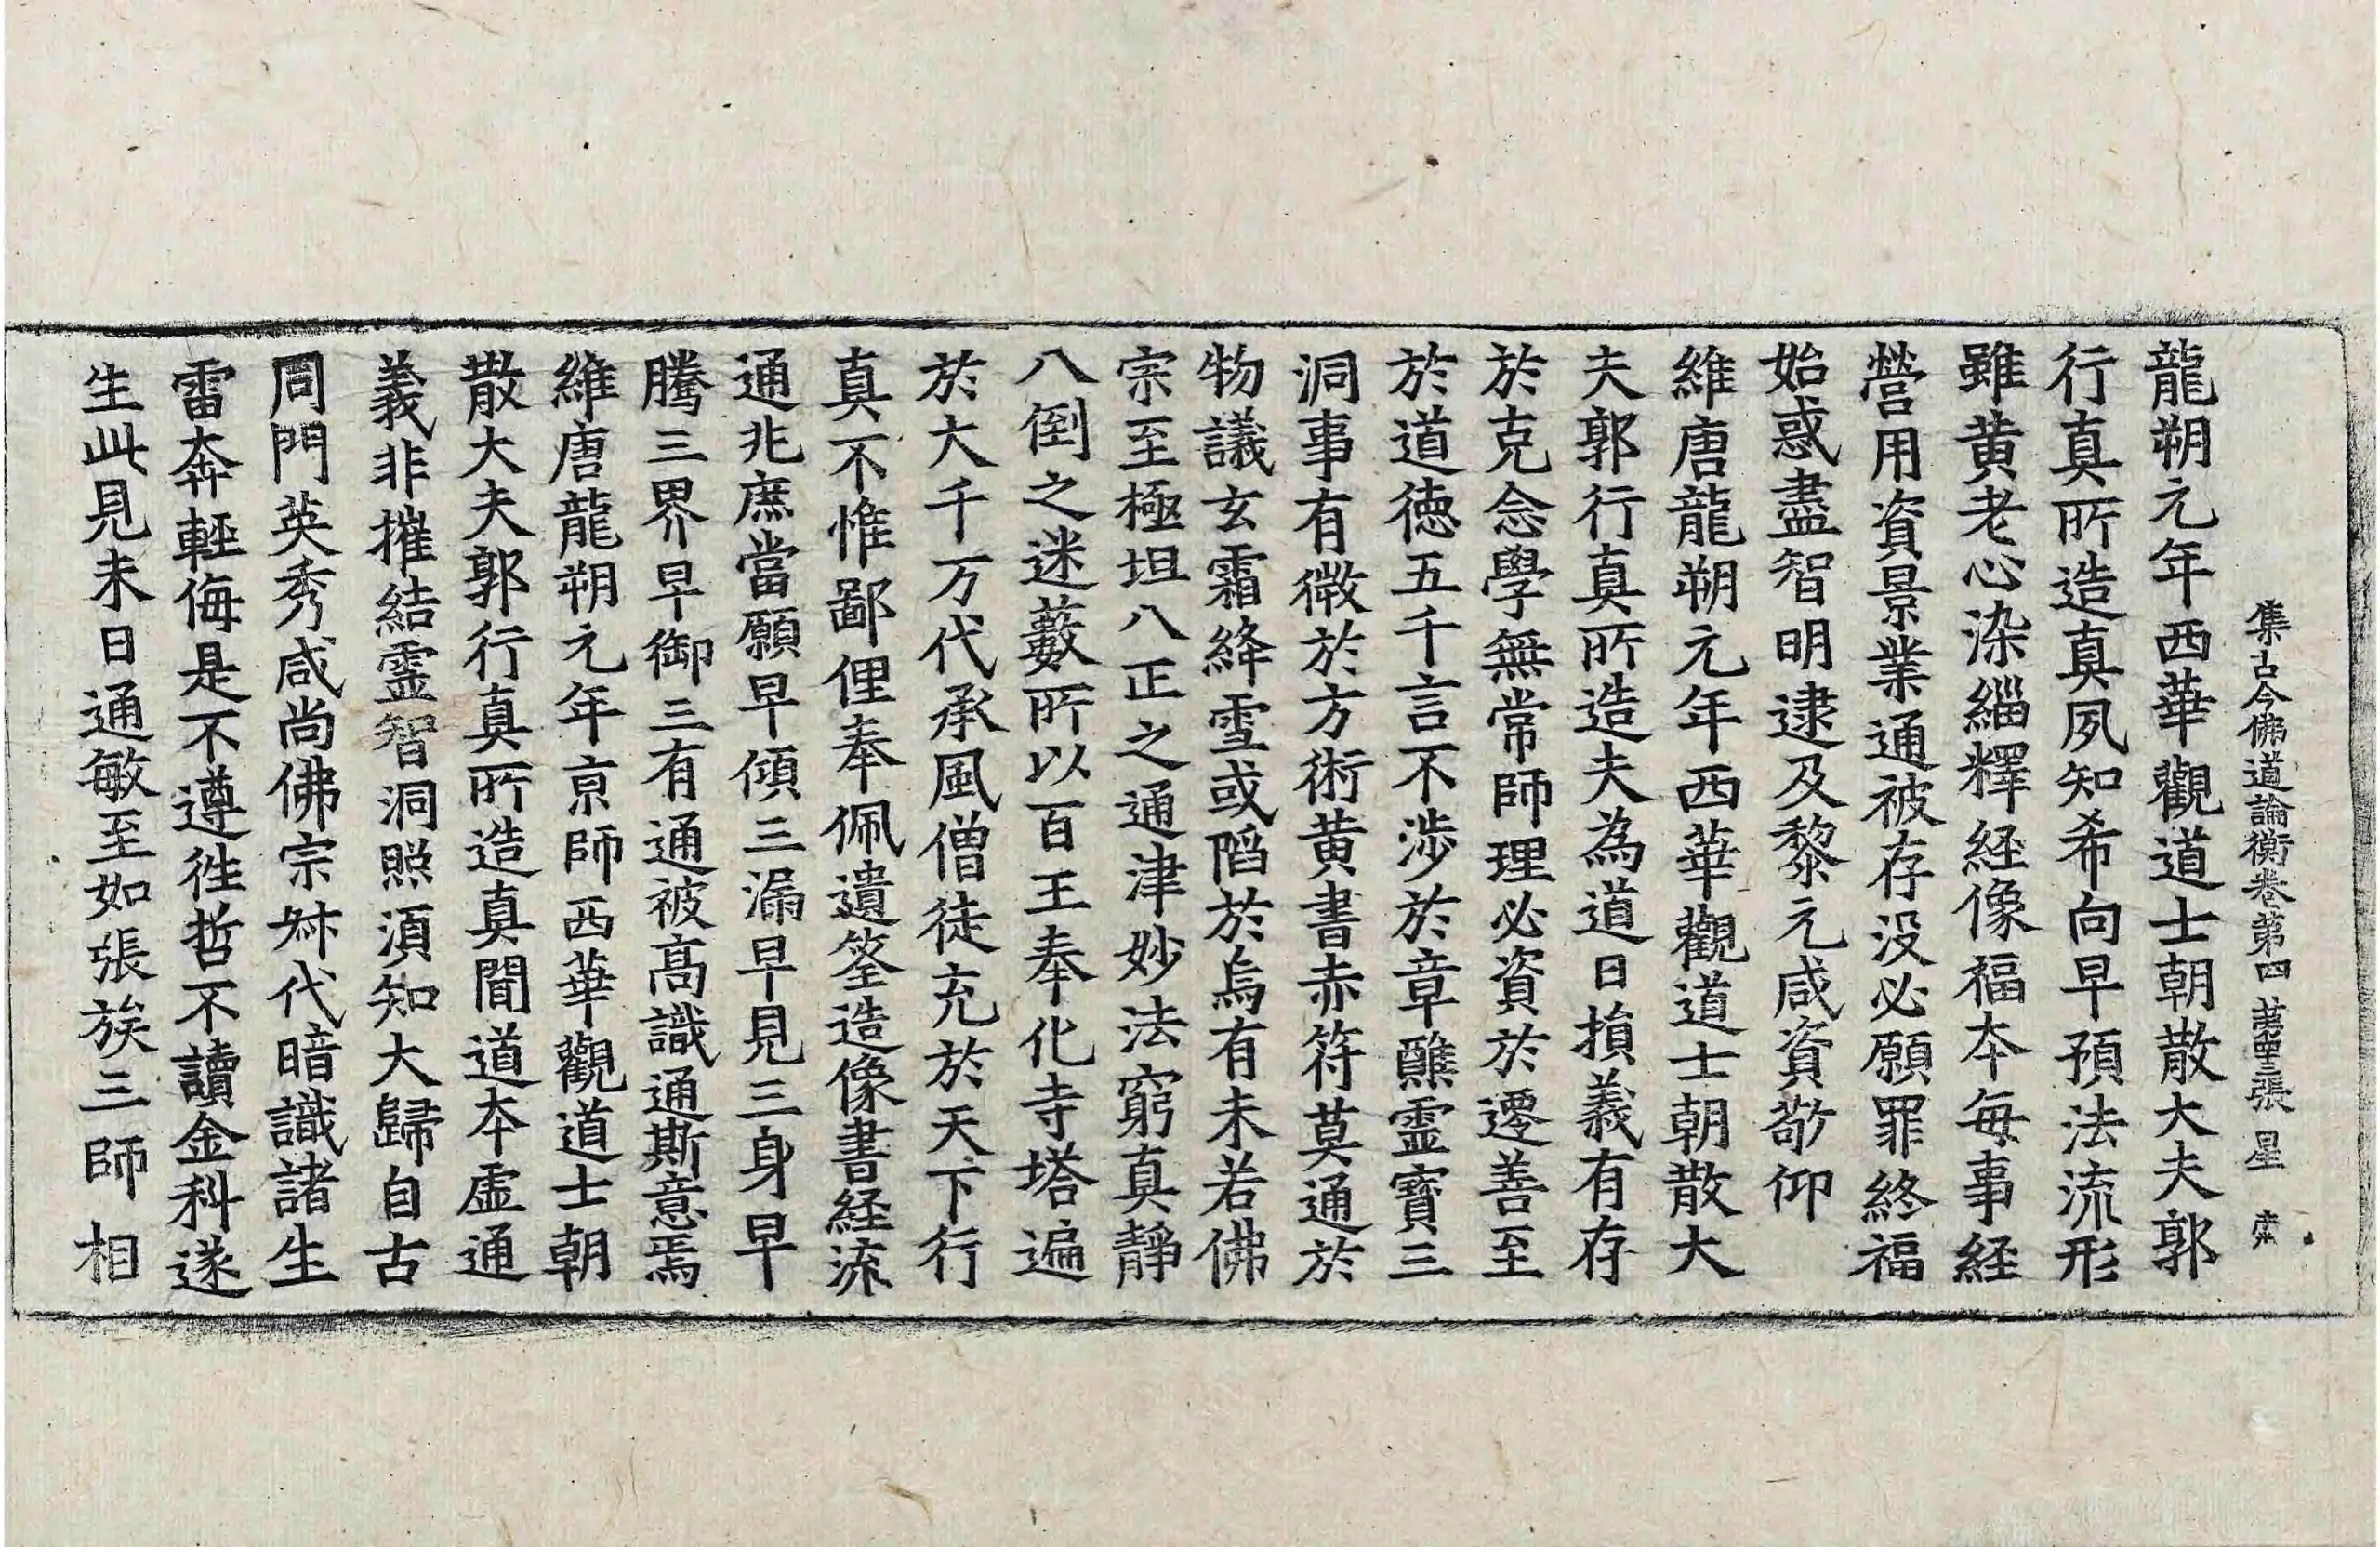 集古今佛道論衡卷第四 第三張 星
龍朔元年西華觀道士朝散大夫郭
行真所造真夙知希向早預法流形
雖黄老心染緇釋経像福本每事経
營用資景業通被存没必願罪終福
始惑盡智明逮及黎元咸資敬仰
維唐龍朔元年西華觀道士朝散大
夫郭行真所造夫為道日損義有存
於克念學無常師理必資於遷善至
於道德五千言不涉於章醮霊寶三
洞事有微於方術黄書赤符莫通於
物議玄霜絳雪或謟於烏有未若佛
宗至極坦八正之通津妙法窮真靜
八倒之迷藪所以百王奉化寺塔遍
於大千万代承風僧徒充於天下行
真不惟鄙俚奉佩遺筌造像書経流
通兆庶當願早傾三漏早見三身早
騰三界早御三有通被高識通斯意焉
維唐龍朔元年京師西華觀道士朝
散大夫郭行真所造真聞道本虛通
義非摧結霊智洞照須知大歸自古
同門英秀咸尚佛宗叔代暗識諸生
雷奔輕侮是不遵徃哲不讀金科遂
生此見未日通敏至如張族三師相